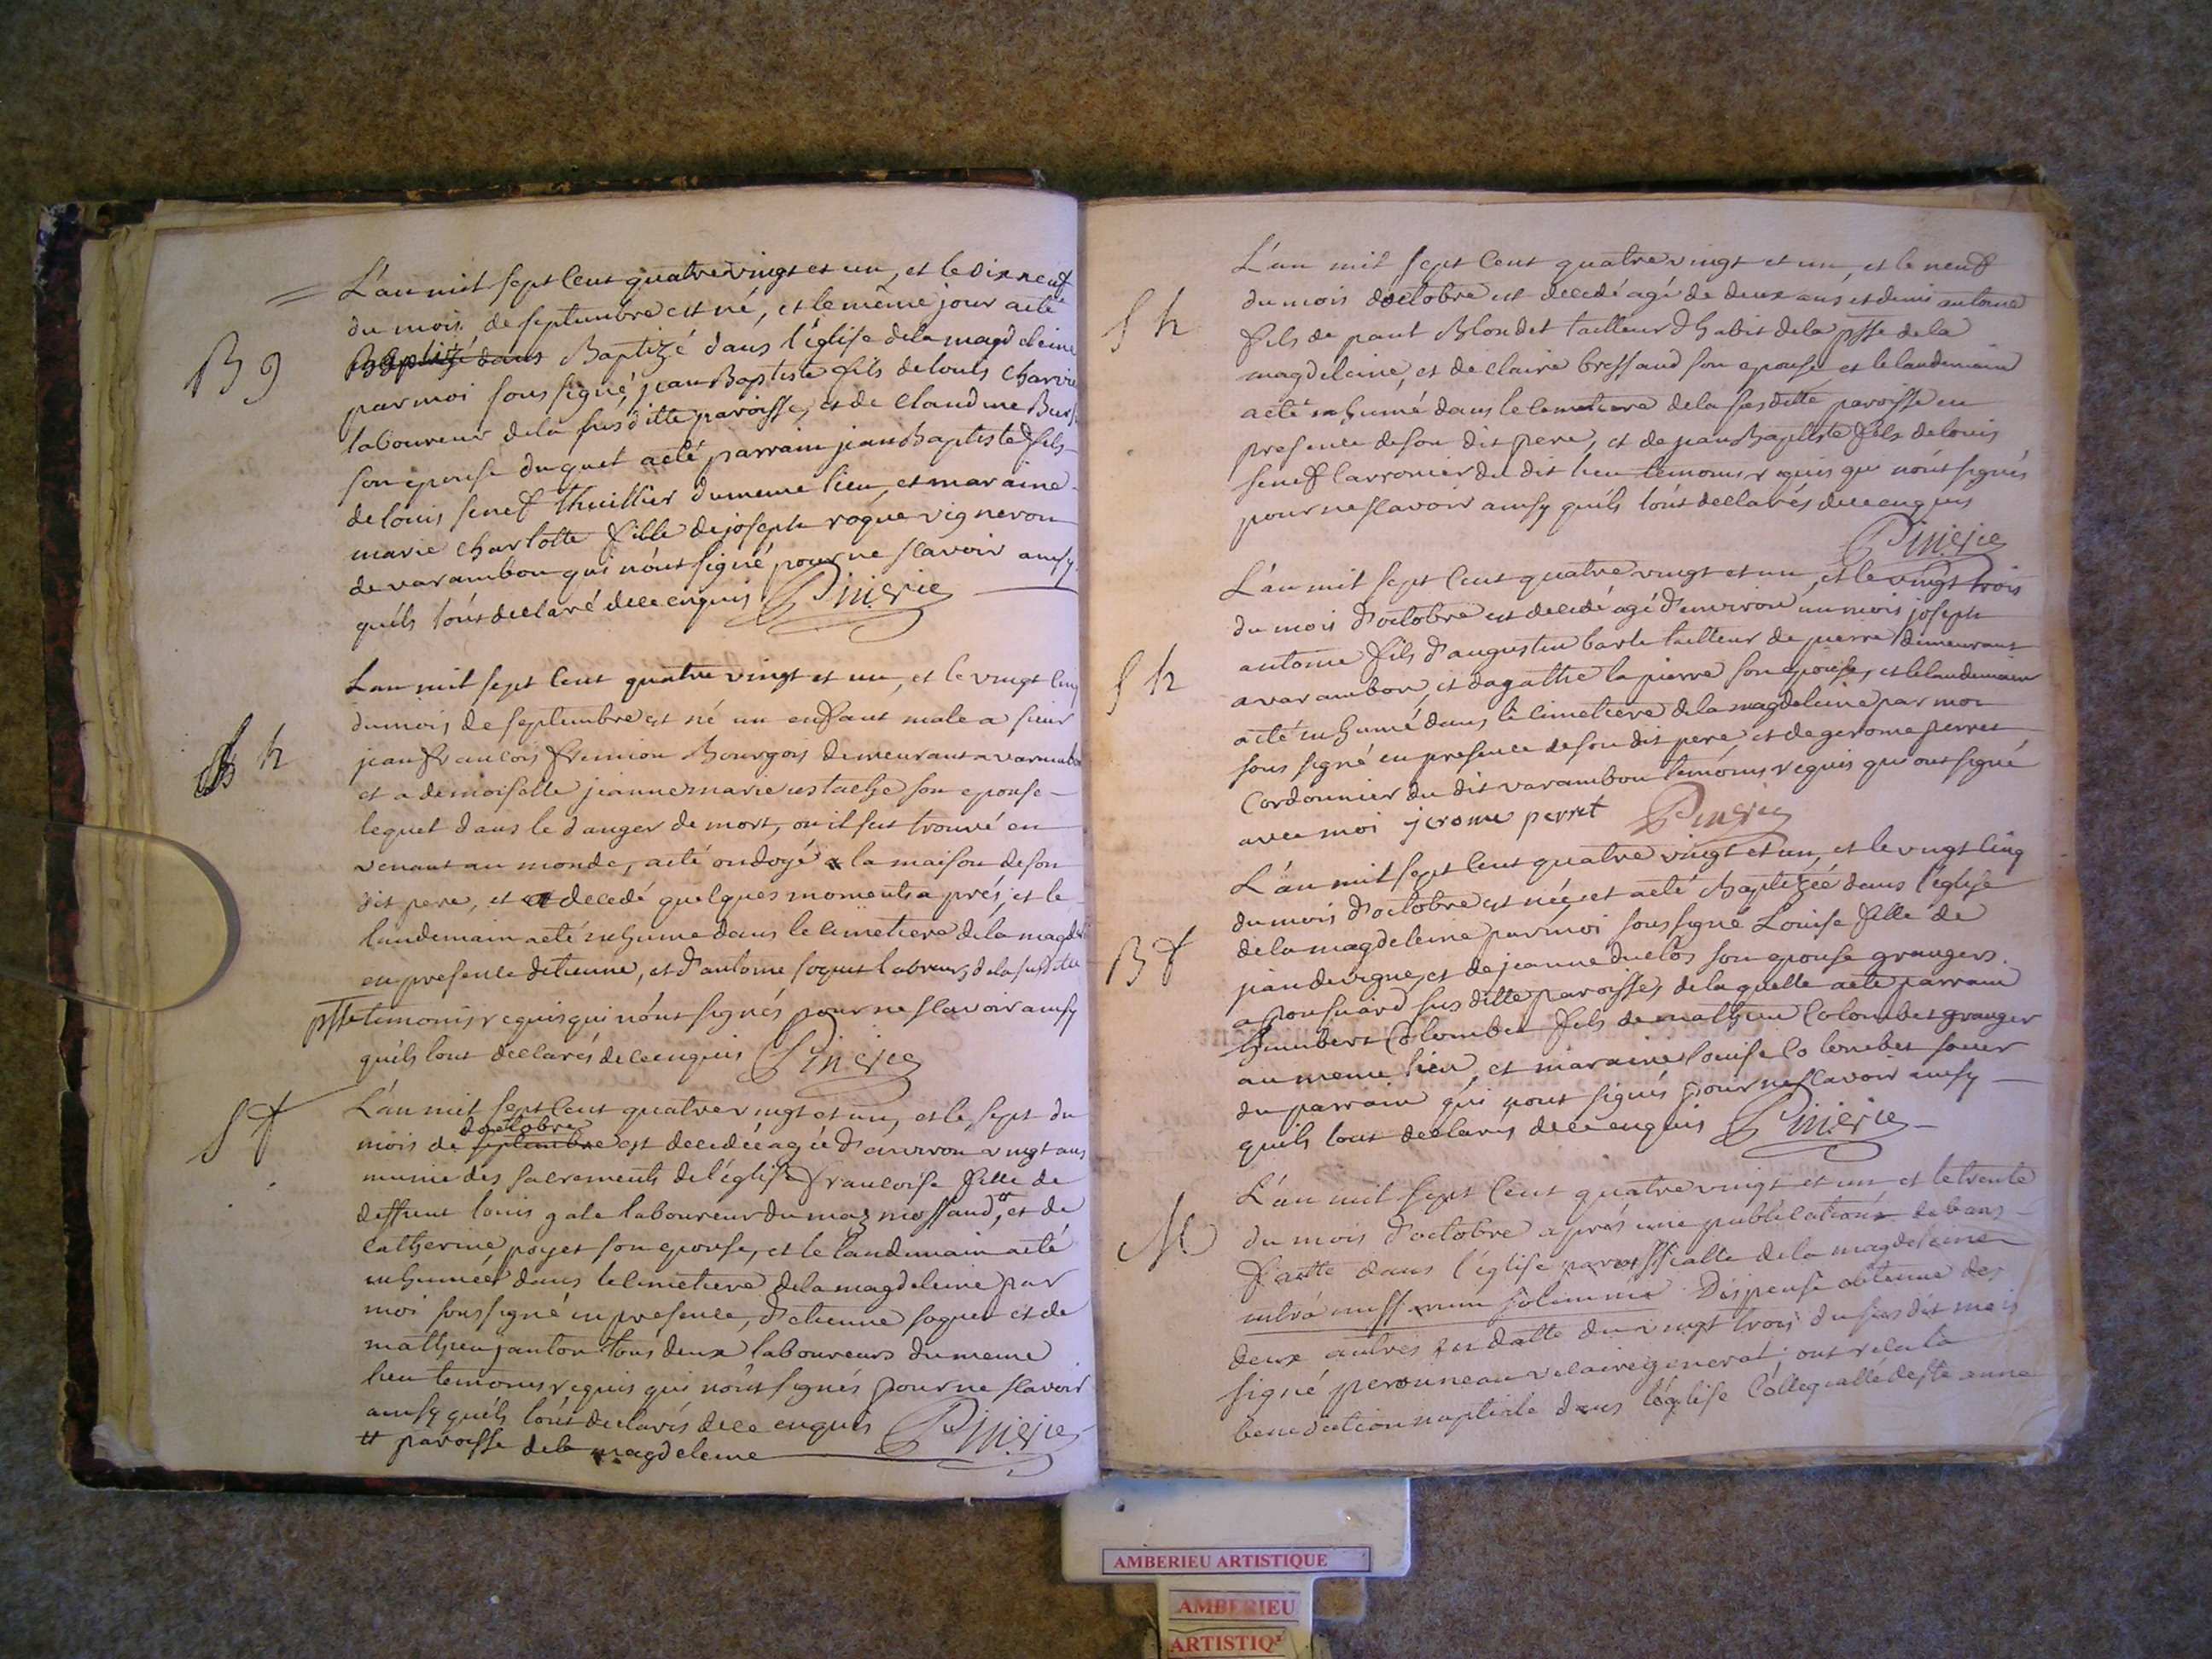 L'an mil sept cent quatre vingt et un, et le dix neuf
du mois de septembre est né, et le même jour a eté
B g
Baptizé dans Baptizé dans l'église de la magdeleine
par moi soussigné, jean Baptiste fils de louis
laboureur de la susditte paroisse, et de claudine
son epouse duquel a eté parrain jean Baptiste fils
de louis senef thuillier du meme lieu, et maraine
marie charlotte fille de joseph roque vigneron
de varambon qui n'ont signé pour ne scavoir ainsy
qu'ils l'ont declaré de ce enquis Pinerie
L'an mil sept cent quatre vingt et un, et le vingt cinq
du mois de septembre est né un enfant male a sieur
S h
jean francois Bourgois demeurant a varambon
et a demoiselle jeanne marie eustache son epouse
lequel dans le danger de mort, ou il fut trouvé en
venant au monde, a eté ondoyé a la maison de son
dit pere, et a decedé quelques moments aprés, et le
landemain a eté inhumé dans le cimetiere de la magdel
en presence detienne, et d'antoine soquet labreurs de la susditte
psse temoins requis qui n'ont signés pour ne scavoir ainsy
qu'ils l'ont declarés de ce enquis Pinerie
S f
L'an mil sept cent quatre vingt et un, et le sept du
doctobre
mois de septembre est decedée agée d'environ vingt ans
munie des sacrements de l'église francoise fille de
deffunt louis gale laboureur du maz mossaud, tt et de
catherine poyet son epouse, et le landemain a eté
inhumée dans le cimetiere de la magdeleine par
moi soussigné en presence, d'etienne soquet et de
mathieu janton tous deux laboureurs du meme
lieu temoins requis qui n'ont signés pour ne scavoir
ainsy qu'ils l'ont declarés de ce enquis Pinerie
tt paroisse de la magdeleine
L'an mil sept cent quatre vingt et un, et le neuf
S h
du mois doctobre est decedé agé de deux ans et demi antoine
fils de paul Blondet tailleur d'habit de la psse de la
magdeleine, et de claire bressand son epouse et le landemain
a eté inhumé dans le cimetiere de la susditte paroisse en
presence de son dit pere, et de jean Baptiste fils de louis
senef carronier du dit lieu temoins requis qui n'ont signés
pour ne scavoir ainsy qu'ils l'ont declarés de ce enquis
Pinerie
L'an mil sept cent quatre vingt et un, et le vingt trois
du mois d'octobre est decedé agé d'environ un mois joseph
S h
antoine fils d'augustin barle tailleur de pierre demeurant
a varambon, et dagathe la pierre son epouse, et le landemain
a eté inhumé dans le cimetiere de la magdeleine par moi
sous signé en presence de son dit pere, et de gerome perret
cordonnier du dit varambon temoins requis qui ont signé
avec moi jerome perret Pinerie
L'an mil sept cent quatre vingt et un, et le vingt cinq
du mois d'octobre est née et a eté Baptizée dans l'église
B f
de la magdeleine par moi soussigné Louise fille de
jean devigne, et de jeanne duclos son epouse grangers
a susditte paroisse, de laquelle a eté parrain
humbert Colombet fils de mathieu Colombet granger
au meme lieu, et maraine louise Colombet soeur
du parrain qui n'ont signés pour ne scavoir ainsy
qu'ils l'ont declarés de ce enquis Pinerie
L'an mil sept cent quatre vingt et un et le trente
M
du mois d'octobre aprés une publication de bans
faitte dans l'église paroissialle de la magdeleine
intrà missarum solemnia Dispense obtenue des
deux autres en datte du vingt trois du susdit mois
signé peronneau vicaire general; ont reçu la
benediction nuptiale dans l'église Collegialle de ste anne
AMBERIEU ARTISTIQUE
AMBERIEU
ARTISTIQ